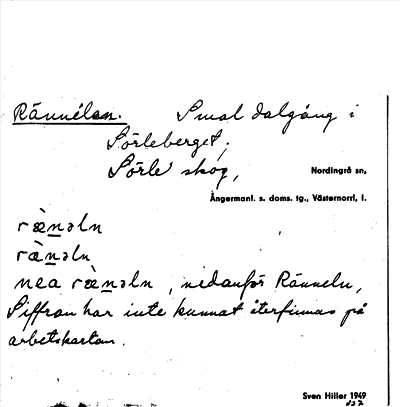 Rännélan. Smal dalgång i
Sörleberget,
Sörle skog,
Nordingrå sn,
Ångermanl. s. doms. tg., Västernorrl. l.
ræ̀nəln
rànəln
nea ræ̀nəln, nedanför Ränneln,
Siffran har inte kunnat återfinnas på
arbetskartan.
Sven Hiller 1949